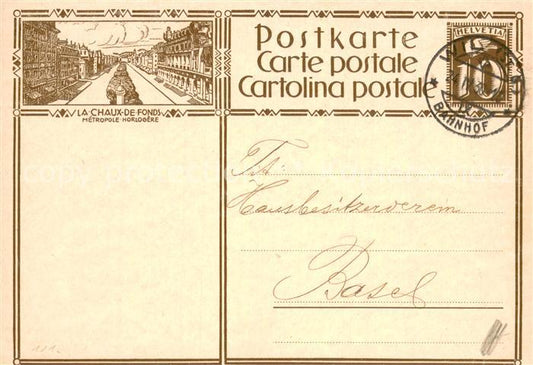 Postkarte
Carte postale
Cartolina postale
HELVETIA
10
BAHNHOF
LA CHAUX-DE-FONDS
MÉTROPOLE HORLOGÈRE
Tit.
Hausbesitzerverein
Basel